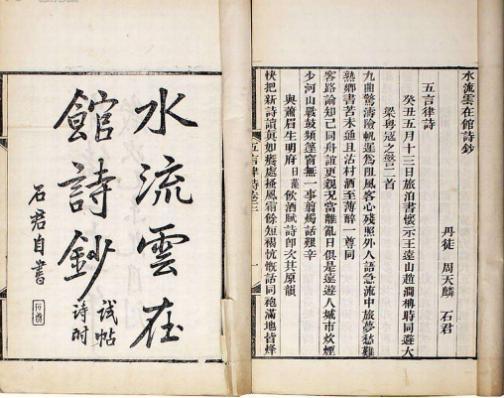 水流雲在館詩鈔
丹徒 周天麟 石君
五言律詩
癸丑五月十三日旅泊書懷示王蓬山趙澗時同避大
梁粵寇之警二首
九曲驚濤險帆遲為阻風客心殘照外人語急流中旅夢愁難
熟鄉書苦未通且沽村酒至薄醉一尊同
客路論知己同舟誼更親況當離亂日俱是遠遊人城市炊煙
少河山戰鼓頻篷窗無一事翦燭話艱辛
與蕭眉生明府飲酒賦詩即次其原韻
快把新詩讀真如癢處搔風霜餘短褐忼慨話同袍滿地皆烽
五言律詩
水流雲在
館詩鈔
試帖
詩附
石君自書